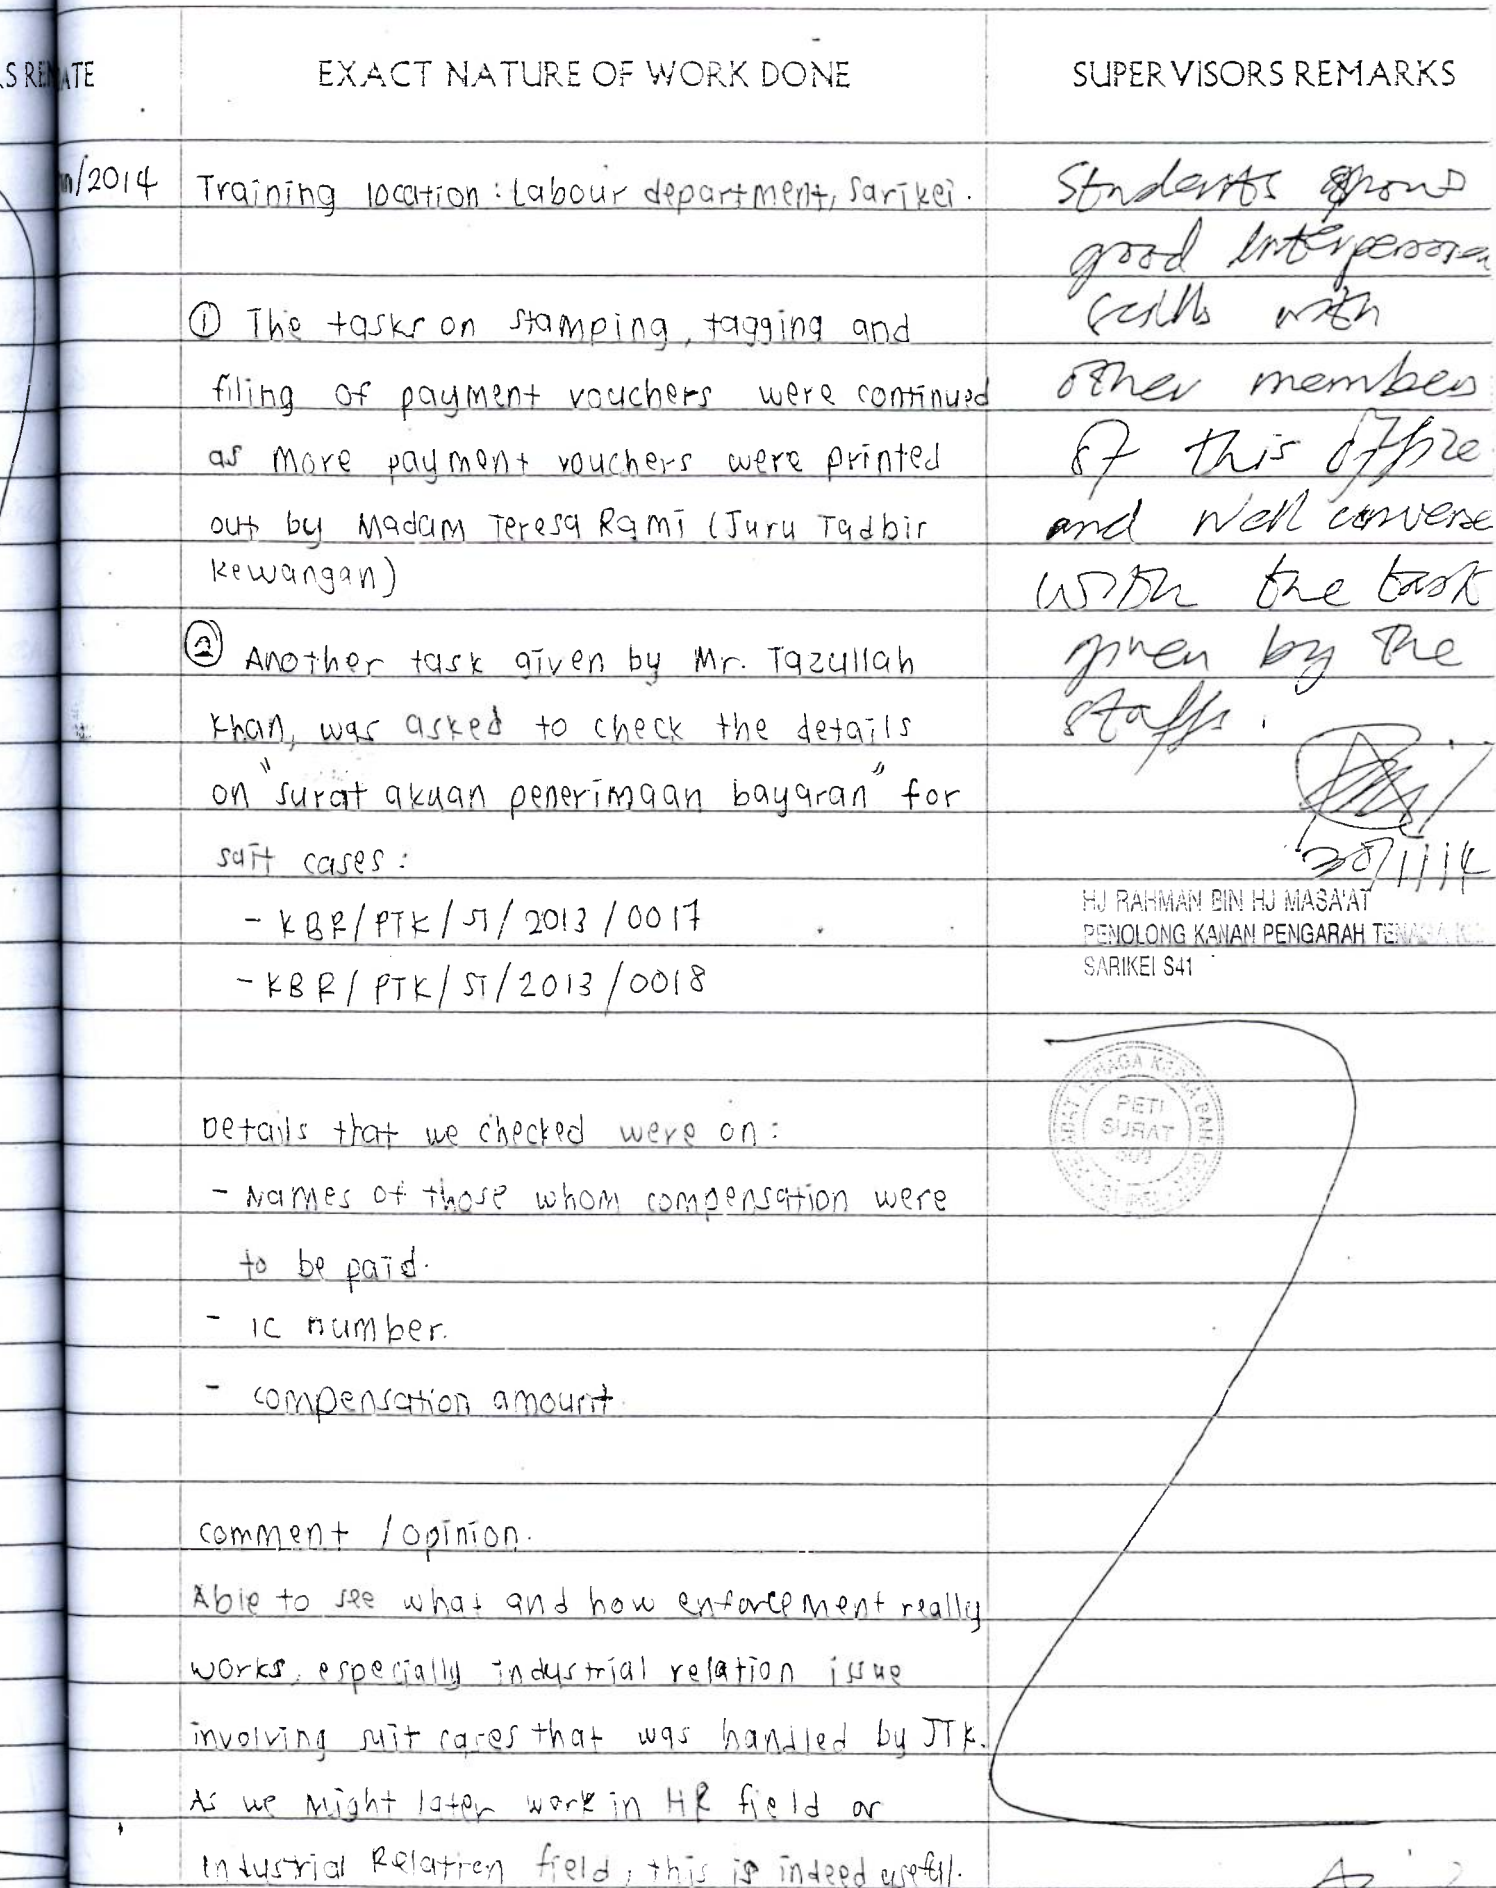 EXACT NATURE OF WORK DONE
SUPERVISORS REMARKS
/2014
Training location : Labour department, Sarikei.
① The tasks on stamping, tagging and
filing of payment vouchers were continued
as more payment vouchers were printed
out by Madam Teresa Rami (Juru Tadbir
Kewangan)
② Another task given by Mr. Tazullah
Khan, was asked to check the details
on "surat akuan penerimaan bayaran" for
suit cases :
- KBR/PTK/ST/2013/0017
- KBR/PTK/ST/2013/0018
Details that we checked were on :
- Names of those whom compensation were
to be paid.
- IC number.
- compensation amount.
comment / opinion.
Able to see what and how enforcement really
works, especially industrial relation issue
involving suit cases that was handled by JTK.
As we might later work in HR field or
Industrial Relation field, this is indeed useful.
Students
good interpersona
skills with
other members
of this office
and well converse
with the task
given by the
staffs.
30/1/14
HJ RAHMAN BIN HJ MASA'AT
PENOLONG KANAN PENGARAH
SARIKEI S41
TENAGA
PETI
SURAT